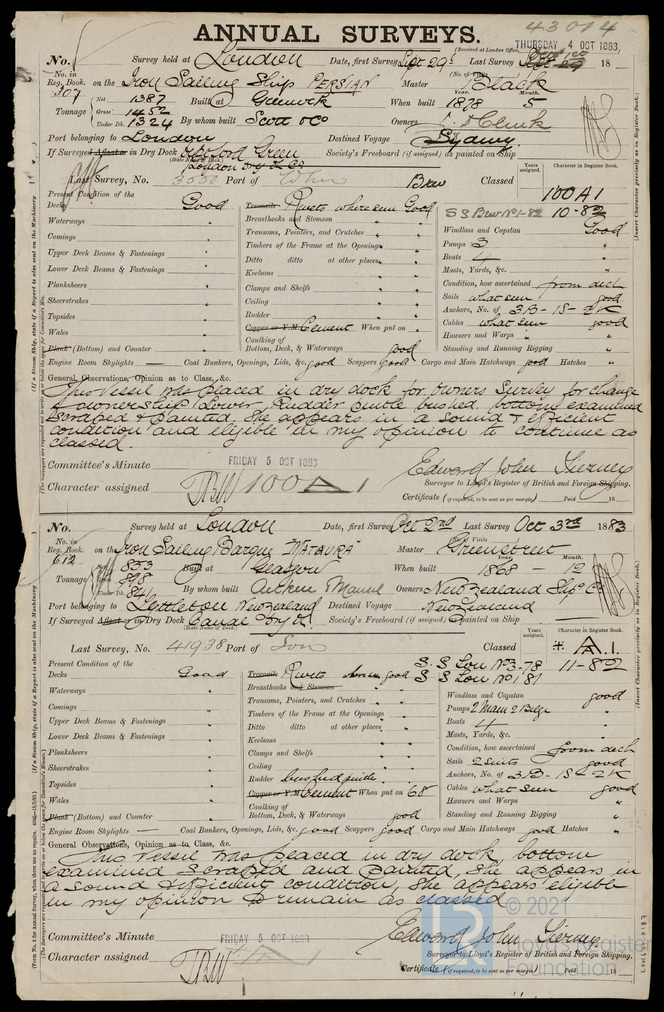 43014
ANNUAL SURVEYS.
(Received at London Office, THURSDAY 4 OCT 1883
No. Survey held at London Date, first Survey Sept 29th Last Survey 18
No. in Reg. Book 307 on the Iron Sailing Ship PERSIAN Master Black
Tonnage Net 1387 Gross 1452 Under Dk. 1324 Built at Greenock When built Year. 1878 Month. 5
By whom built Scott & Co Owners
Port belonging to London Destined Voyage Sydney
If Surveyed Afloat or in Dry Dock Society's Freeboard (if assigned) as painted on Ship
(State Name of Dock.) London Dry D Co
Last Survey, No. Port of Classed Years assigned. Character in Register Book. 100 A1
Present Condition of the
Decks Good Treenails Rivets where seen Good S S No 1-82 10-82
Waterways " Breasthooks and Stemson " Windlass and Capstan Good
Comings " Transoms, Pointers, and Crutches " Pumps 3 "
Upper Deck Beams & Fastenings " Timbers of the Frame at the Openings " Boats 4 "
Lower Deck Beams & Fastenings " Ditto ditto at other places " Masts, Yards, &c. "
Planksheers " Keelsons " Condition, how ascertained from deck
Sheerstrakes " Clamps and Shelfs " Sails what seen good
Topsides " Ceiling " Anchors, No. of 3B-1S-2K
Wales " Rudder " Cables what seen good
Copper or Y.M. Cement When put on Hawsers and Warps "
Plank (Bottom) and Counter " Caulking of Bottom, Deck, & Waterways good Standing and Running Rigging "
Engine Room Skylights — Coal Bunkers, Openings, Lids, &c. good Scuppers good Cargo and Main Hatchways good Hatches "
General Observations, Opinion as to Class, &c.
This Vessel was placed in dry dock for owners Survey for change
of ownership Lower Rudder pintle bushed, bottom examined
Scraped & painted, She appears in a sound & efficient
condition and eligible in my opinion to continue as
classed
Committee's Minute FRIDAY 5 OCT 1883 Edward John Tierney
Character assigned 100 A 1 Surveyor to Lloyd's Register of British and Foreign Shipping.
Certificate (if required, to be sent as per margin) Paid 18
No. Survey held at London Date, first Survey Oct 2nd Last Survey Oct 3rd 1883
No. in Reg. Book 612 on the Iron Sailing Barque "MATAURA" Master Greenstreet
Tonnage 853 898 841 Built at Glasgow When built Year. 1868 Month. 12
By whom built Aitken Mansel Owners New Zealand Ship Co
Port belonging to Lyttelton New Zealand Destined Voyage New Zealand
If Surveyed Afloat or in Dry Dock Canal Dry D. Society's Freeboard (if assigned) as painted on Ship
(State Name of Dock.)
Last Survey, No. 41938 Port of Lon Classed Years assigned. Character in Register Book. A.1.
Present Condition of the S.S Lon No 3-78 11-82
Decks Good Treenails Rivets where seen good S S Lon No 1 81
Waterways " Breasthooks and Stemson " Windlass and Capstan good
Comings " Transoms, Pointers, and Crutches " Pumps 2 Main 2 Bilge "
Upper Deck Beams & Fastenings " Timbers of the Frame at the Openings " Boats 4 "
Lower Deck Beams & Fastenings " Ditto ditto at other places " Masts, Yards, &c. "
Planksheers " Keelsons " Condition, how ascertained from deck
Sheerstrakes " Clamps and Shelfs " Sails 2 suits good
Topsides " Ceiling " Anchors, No. of 3B-1S-2K
Wales " Rudder bushed pintles Cables what seen good
Copper or Y.M. Cement When put on 68 Hawsers and Warps "
Plank (Bottom) and Counter " Caulking of Bottom, Deck, & Waterways good Standing and Running Rigging "
Engine Room Skylights — Coal Bunkers, Openings, Lids, &c. good Scuppers good Cargo and Main Hatchways good Hatches "
General Observations, Opinion as to Class, &c.
This Vessel was placed in dry dock bottom
examined Scraped and Painted, She appears in
a sound & efficient condition, She appears eligible
in my opinion to remain as classed
Committee's Minute FRIDAY 5 OCT 1883 Edward John Tierney
Character assigned Surveyor to Lloyd's Register of British and Foreign Shipping.
Certificate (if required, to be sent as per margin) Paid 18
© 2021
Lloyd's Register
Foundation